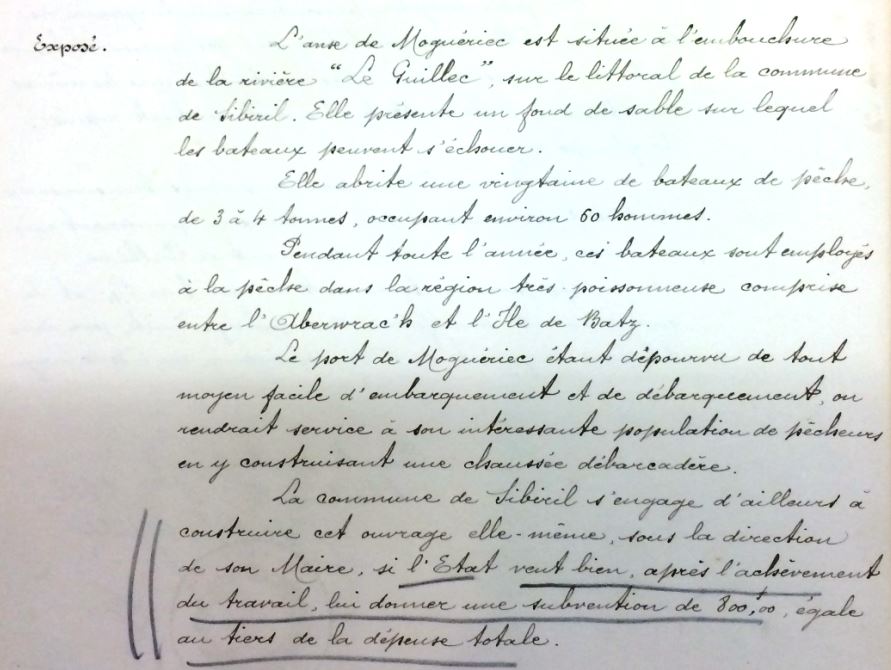 Exposé.
L'anse de Moguériec est située à l'embouchure
de la rivière "Le Guillec", sur le littoral de la commune
de Sibiril. Elle présente un fond de sable sur lequel
les bateaux peuvent s'échouer.
Elle abrite une vingtaine de bateaux de pêche,
de 3 à 4 tonnes, occupant environ 60 hommes.
Pendant toute l'année, ces bateaux sont employés
à la pêche dans la région très poissonneuse comprise
entre l'Aberwrac'h et l'Ile de Batz.
Le port de Moguériec étant dépourvu de tout
moyen facile d'embarquement et de débarquement, on
rendrait service à son intéressante population de pêcheurs
en y construisant une chaussée débarcadère.
La commune de Sibiril s'engage d'ailleurs à
construire cet ouvrage elle-même, sous la direction
de son Maire, si l'Etat veut bien, après l'achèvement
du travail, lui donner une subvention de 800,f00, égale
au tiers de la dépense totale.